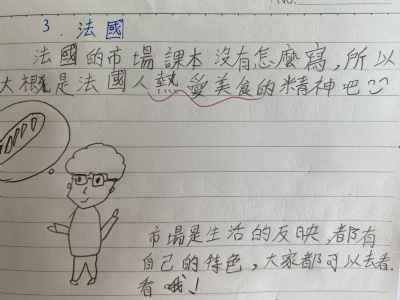 NO.
3. 法國
法國的市場課本沒有怎麼寫,所以
大概是法國人熱愛美食的精神吧
市場是生活的反映,都有
自己的特色,大家都可以去看
看哦!